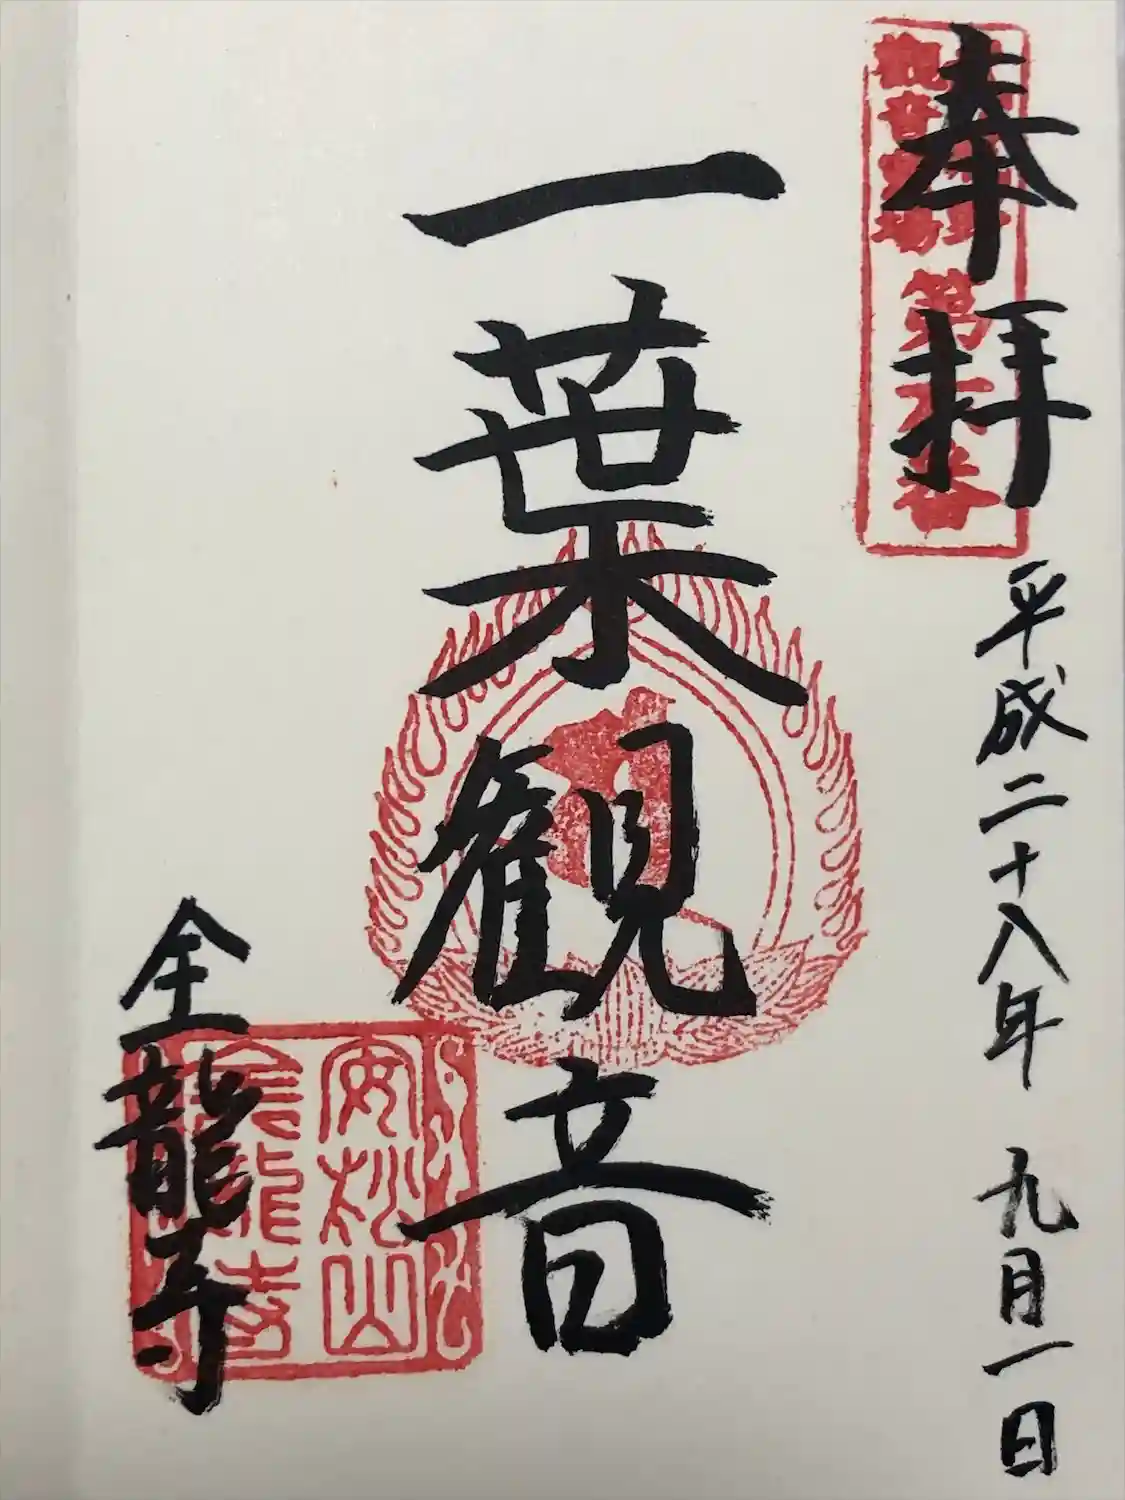 奉拝
平成二十八年 九月一日
観音霊場
第
番
一葉観音
安松山
金龍寺
金龍寺